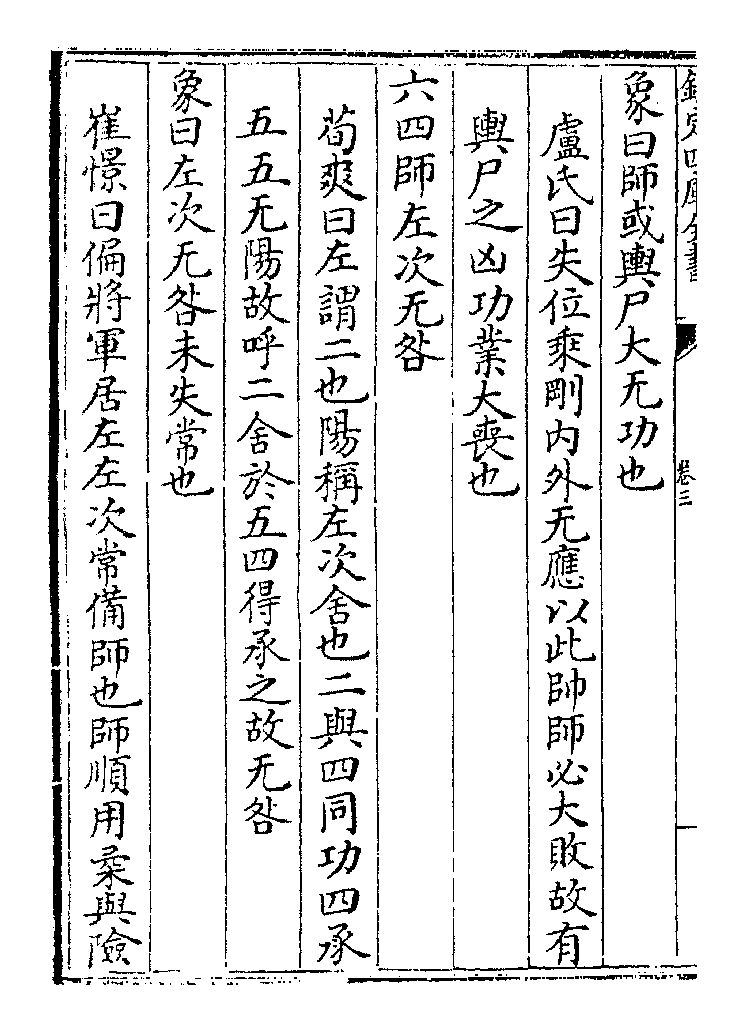 欽定四庫全書
卷三
象曰師或輿尸大无功也
盧氏曰失位乘剛内外无應以此帥師必大敗故有
輿尸之凶功業大喪也
六四師左次无咎
荀爽曰左謂二也陽稱左次舍也二與四同功四承
五五无陽故呼二舍於五四得承之故无咎
象曰左次无咎未失常也
崔憬曰偏將軍居左左次常備師也師順用柔與險